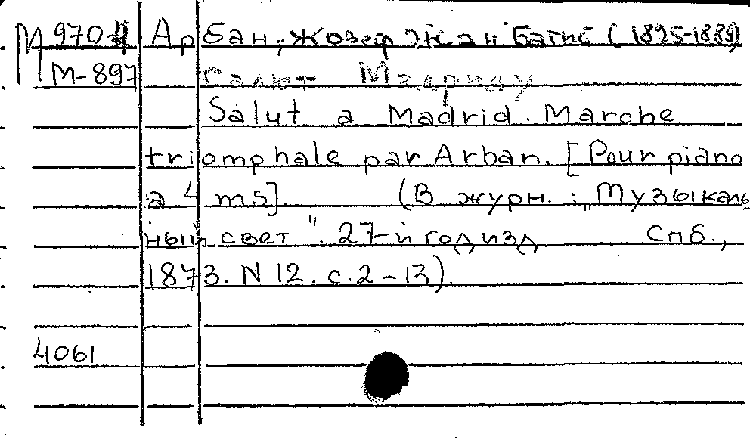 М 970-4 Арбан, Жозеф Жан Батист (1825-1889)
М-897 Салют Мадриду
Salut a Madrid. Marche
triomphale par Arban. [Pour piano
a 4 ms]. (В журн.: "Музыкаль
ный свет". 27-й год изд. Спб.,
1873. N 12. с. 2-13).
4061